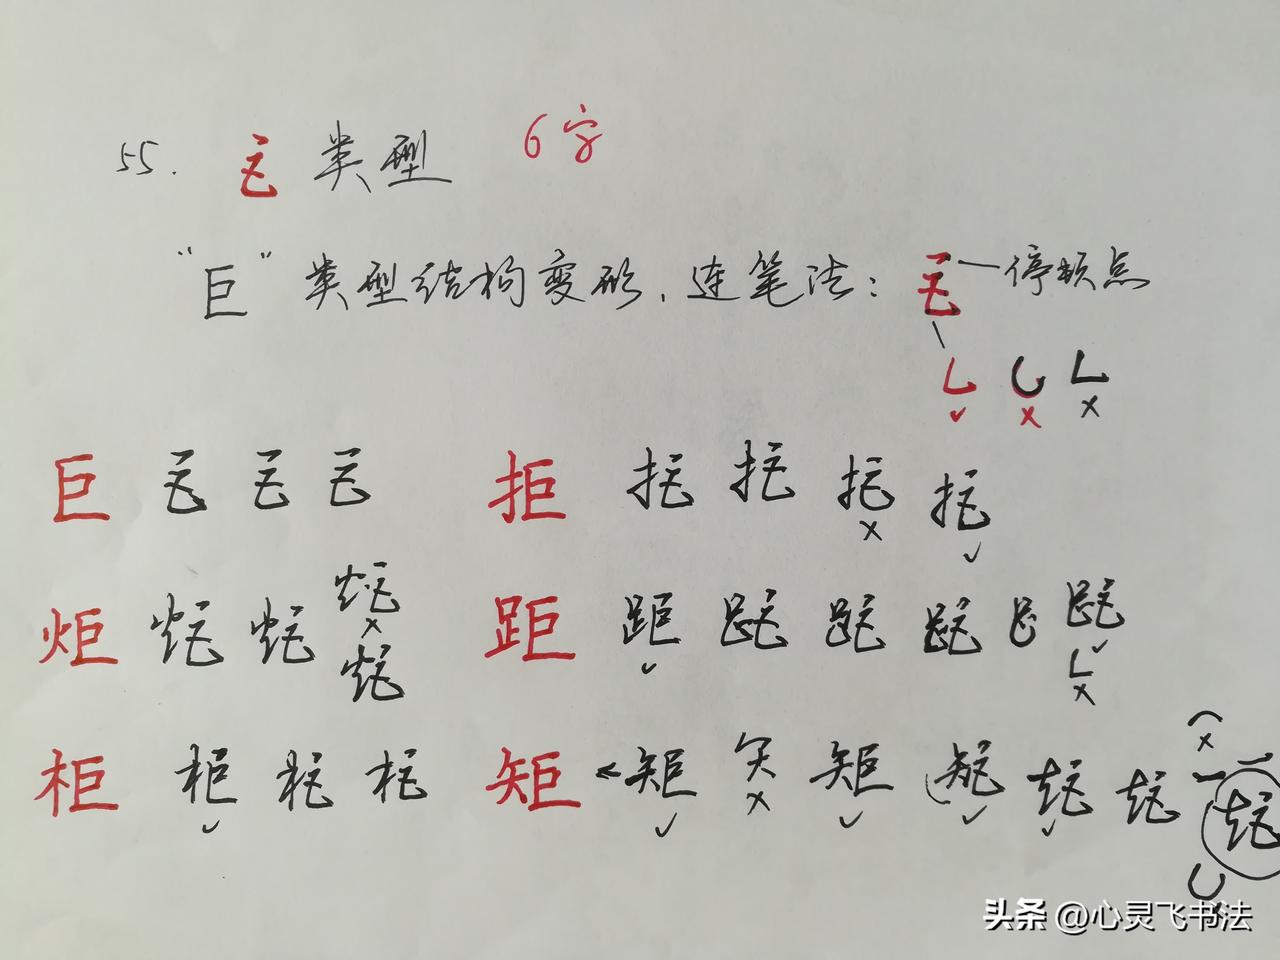 55. 巨类型 6字
“巨”类型结构变形，连笔法：巨—停顿点
✓ × ×
巨 巨 巨 巨 拒 拒 拒 拒 拒
× ✓
炬 炬 炬 炬 距 距 距 距 距 距
× 炬 ✓ ✓
×
柜 柜 柜 柜 矩 矩 矢 矩 矩 矩 矩 矩
✓ ✓ × ✓ ✓ ✓
头条 @心灵飞书法